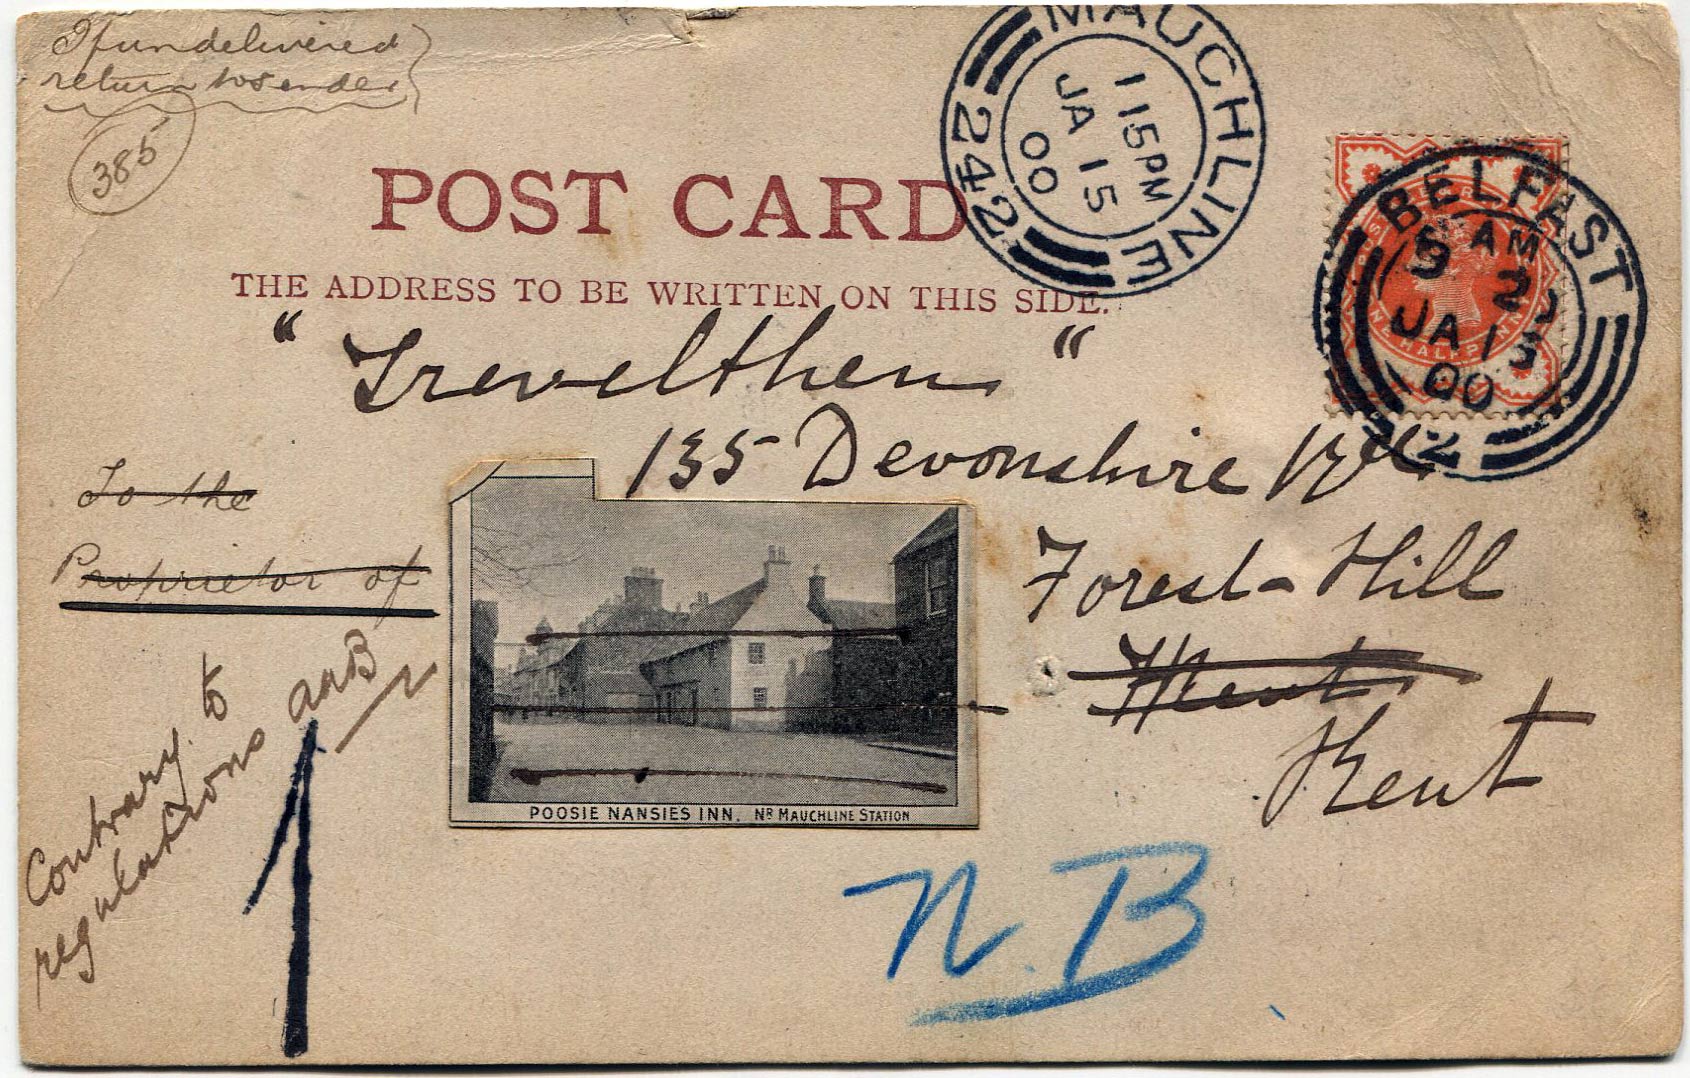 If undelivered
return to sender
385
POST CARD
THE ADDRESS TO BE WRITTEN ON THIS SIDE.
MAUCHLINE
1 15 PM
JA 15
00
242
BELFAST
AM
JA 13
00
2
HALFPENNY
"Trevelthen"
135 Devonshire Rd
Forest-Hill
Kent
Kent
To the
Proprietor of
POOSIE NANSIES INN. NR MAUCHLINE STATION
Contrary to
regulations
1
N.B